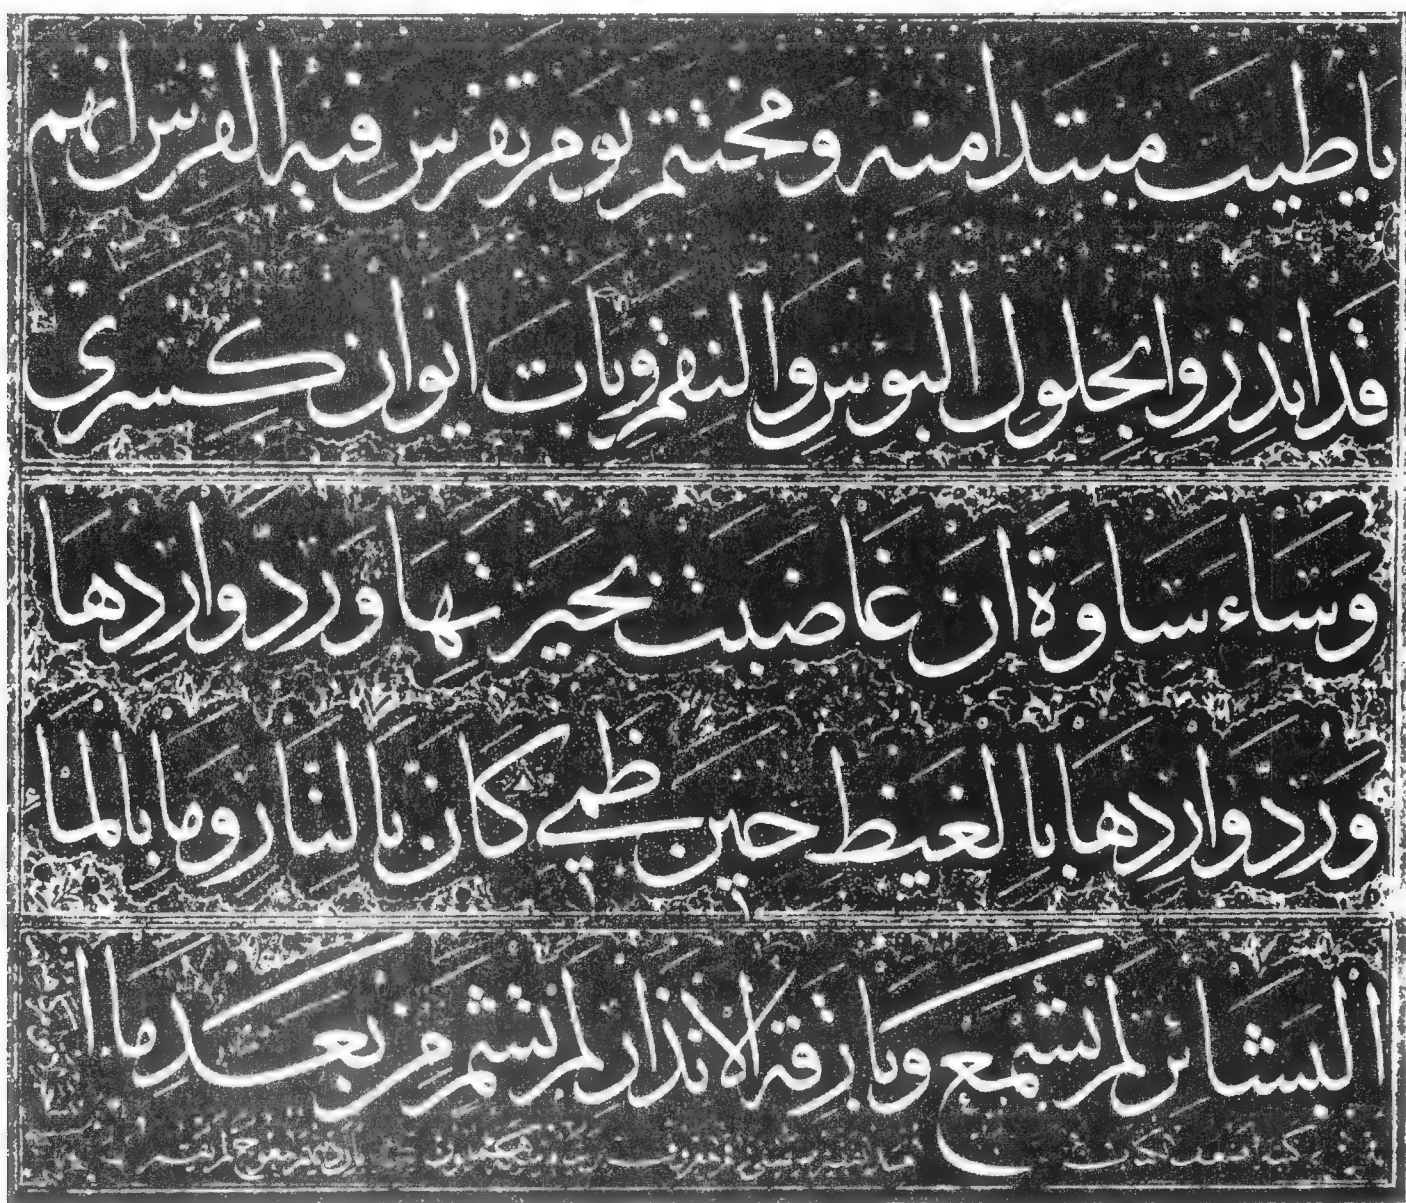 يا طيب مبتدا منه ومختتم يوم تفرس فيه الفرس انهم
قد انذروا بحلول البوس والنقم وبات ايوان كسرى
وساء ساوة ان غاضت بحيرتها ورد واردها
ورد واردها بالغيظ حين ظمي كان بالنار وما بالما
البشائر لم تسمع وبارقة الانذار لم تشم من بعد ما